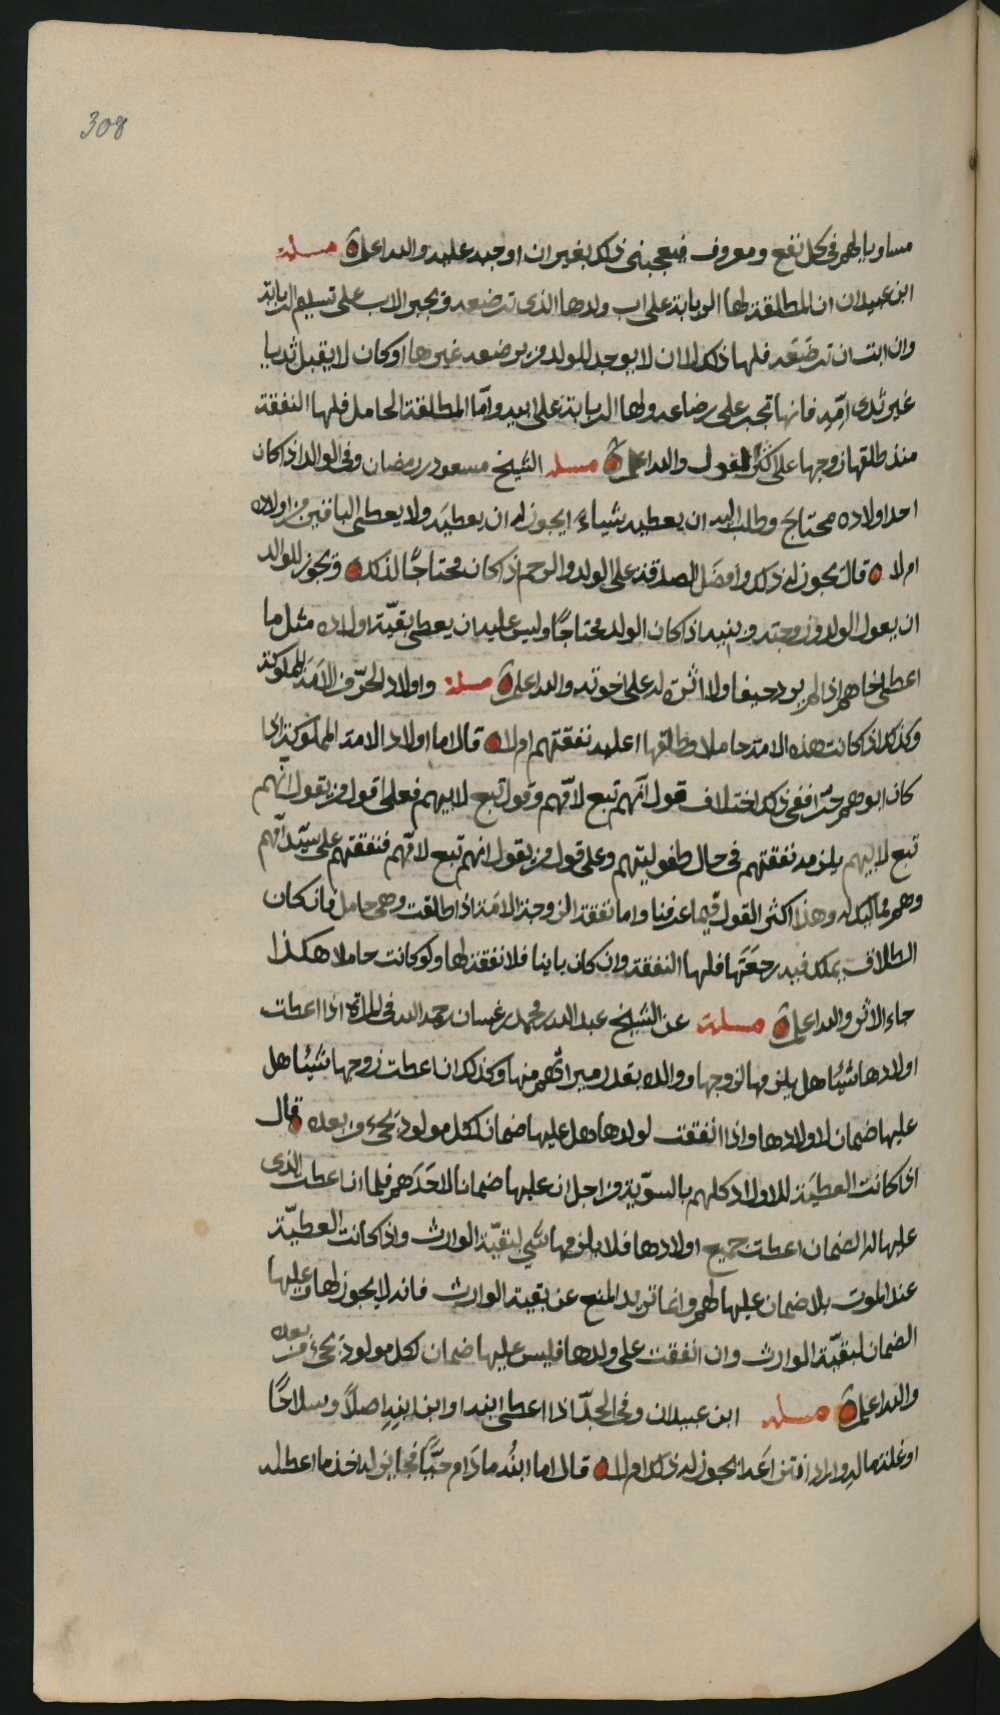 308
مساويا لهم في كل نفع ومعروف فيعجبني ذلك بغير ان اوجبه عليه والله اعلم مسئلة
ابن عبيدان ان المطلقة لها الربابة على اب ولدها الذي ترضعه ويجبر الاب على تسليم الربابة
وان ابت ان ترضعه فلها ذلك الا ان لا يوجد للولد من يرضعه غيرها او كان لا يقبل ثديا
غير ثدي امّه فانها تجبر على رضاعه ولها الربابة على ابيه وامّا المطلقة الحامل فلها النفقة
منذ طلقها زوجها على اكثر القول والله اعلم مسئله الشيخ مسعود بن رمضان وفي الوالد اذا كان
احد اولاده محتاج وطلب اليه ان يعطيه شياء ايجوز له ان يعطيه ولا يعطي الباقين من اولاده
ام لا قال يجوز له ذلك وافضل الصدقة على الولد والرحم اذا كان محتاجًا لذلك ويجوز للوالد
ان يعول الولد وزوجته وبنيه اذا كان الولد محتاجًا وليس عليه ان يعطي بقيّة اولاده مثل ما
اعطى اخاهم اذا لم يرد حيفا ولا اثرة له على اخوته والله اعلم مسئلة واولاد الحرّ من الامة المملوكة
وكذلك اذا كانت هذه الامة حاملا وطلقها اعليه نفقتهم ام لا قال اما اولاد الامة المملوكة اذا
كان ابوهم حرّا ففي ذلك اختلاف قول انّهم تبع لامّهم وقول تبع لابيهم فعلى قول من يقول انّهم
تبع لابيهم يلزمه نفقتهم في حال طفوليتهم وعلى قول من يقول انهم تبع لامّهم فنفقتهم على سيّد امّهم
وهم مماليك له وهذا اكثر القول فيما عرفنا واما نفقة الزوجة الامة اذا طلقت وهي حامل فان كان
الطلاق يملك فيه رجعتها فلها النفقة وان كان باينا فلا نفقة لها ولو كانت حاملا هكذا
جاء الاثر والله اعلم مسئلة عن الشيخ عبد الله بن محمد بن غسان رحمه الله في المراة اذا اعطت
اولادها شيئا هل يلزمها لزوجها ووالده بقدر ميراثهم منها وكذلك ان اعطت زوجها شيئا هل
عليها ضمان لاولادها واذا انفقت لولدها هل عليها ضمان لكل مولود يجيء من بعده قال
اذا كانت العطية للاولاد كلهم بالسوّية من اجل ان عليها ضمانا لاحدهم فلما ان اعطت الذي
عليها له الضمان اعطت جميع اولادها فلا يلزمها شي لبقيّة الوارث واذا كانت العطيّة
عند الموت بلا ضمان عليها لهم وانما تريد المنع عن بقية الوارث فانه لا يجوز لها وعليها
الضمان لبقيّة الوارث وان انفقت على ولدها فليس عليها ضمان لكل مولود يجيء من بعده
والله اعلم مسئله ابن عبيدان وفي الجدّ اذا اعطى ابنه او ابن ابنه اصلاً وسلاحًا
او غلة مالٍ واراد انتزاعه ايجوز له ذلك ام لا قال اما ابنُه ما دام حيًّا فجايز له اخذ ما اعطا له